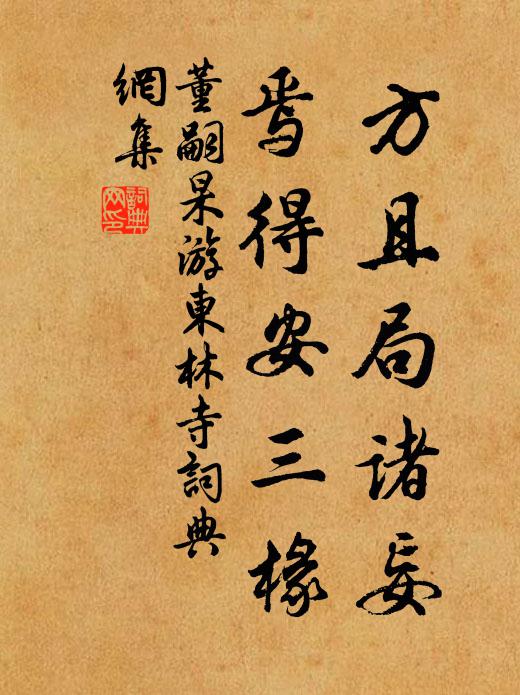 方且局诸妄
焉得安三椽
董嗣杲游東林寺詞典
網集
詞典網印